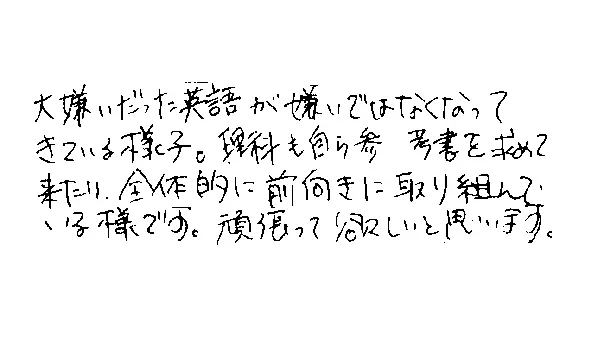 大嫌いだった英語が嫌いではなくなって
きている様子。理科も自ら参考書を求めて
来たり、全体的に前向きに取り組んで
いる様です。頑張って欲しいと思います。